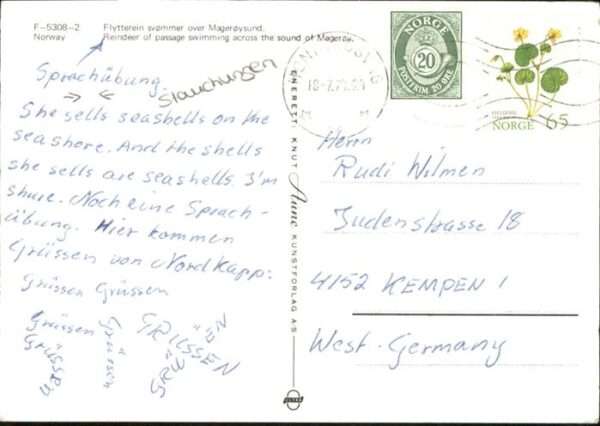 F-5308-2
Norway
Flytterein svømmer over Magerøysund.
Reindeer of passage swimming across the sound of Magerøy.
Sprachübung.
Stauchungen
She sells seashells on the
seashore. And the shells
she sells are seashells. I'm
shure. Noch eine Sprach-
übung. Hier kommen
Grüssen von Nordkapp:
Grüssen Grüssen
Grüssen
Grüssen
GRÜSSEN
Grüssen
GRÜ
ENERETT: KNUT Aune KUNSTFORLAG AS
NORGE
20
POSTFRIM. 20 ØRE
NORGE 65
Herrn
Rudi Wilmen
Judenstrasse 18
4152 KEMPEN 1
West-Germany